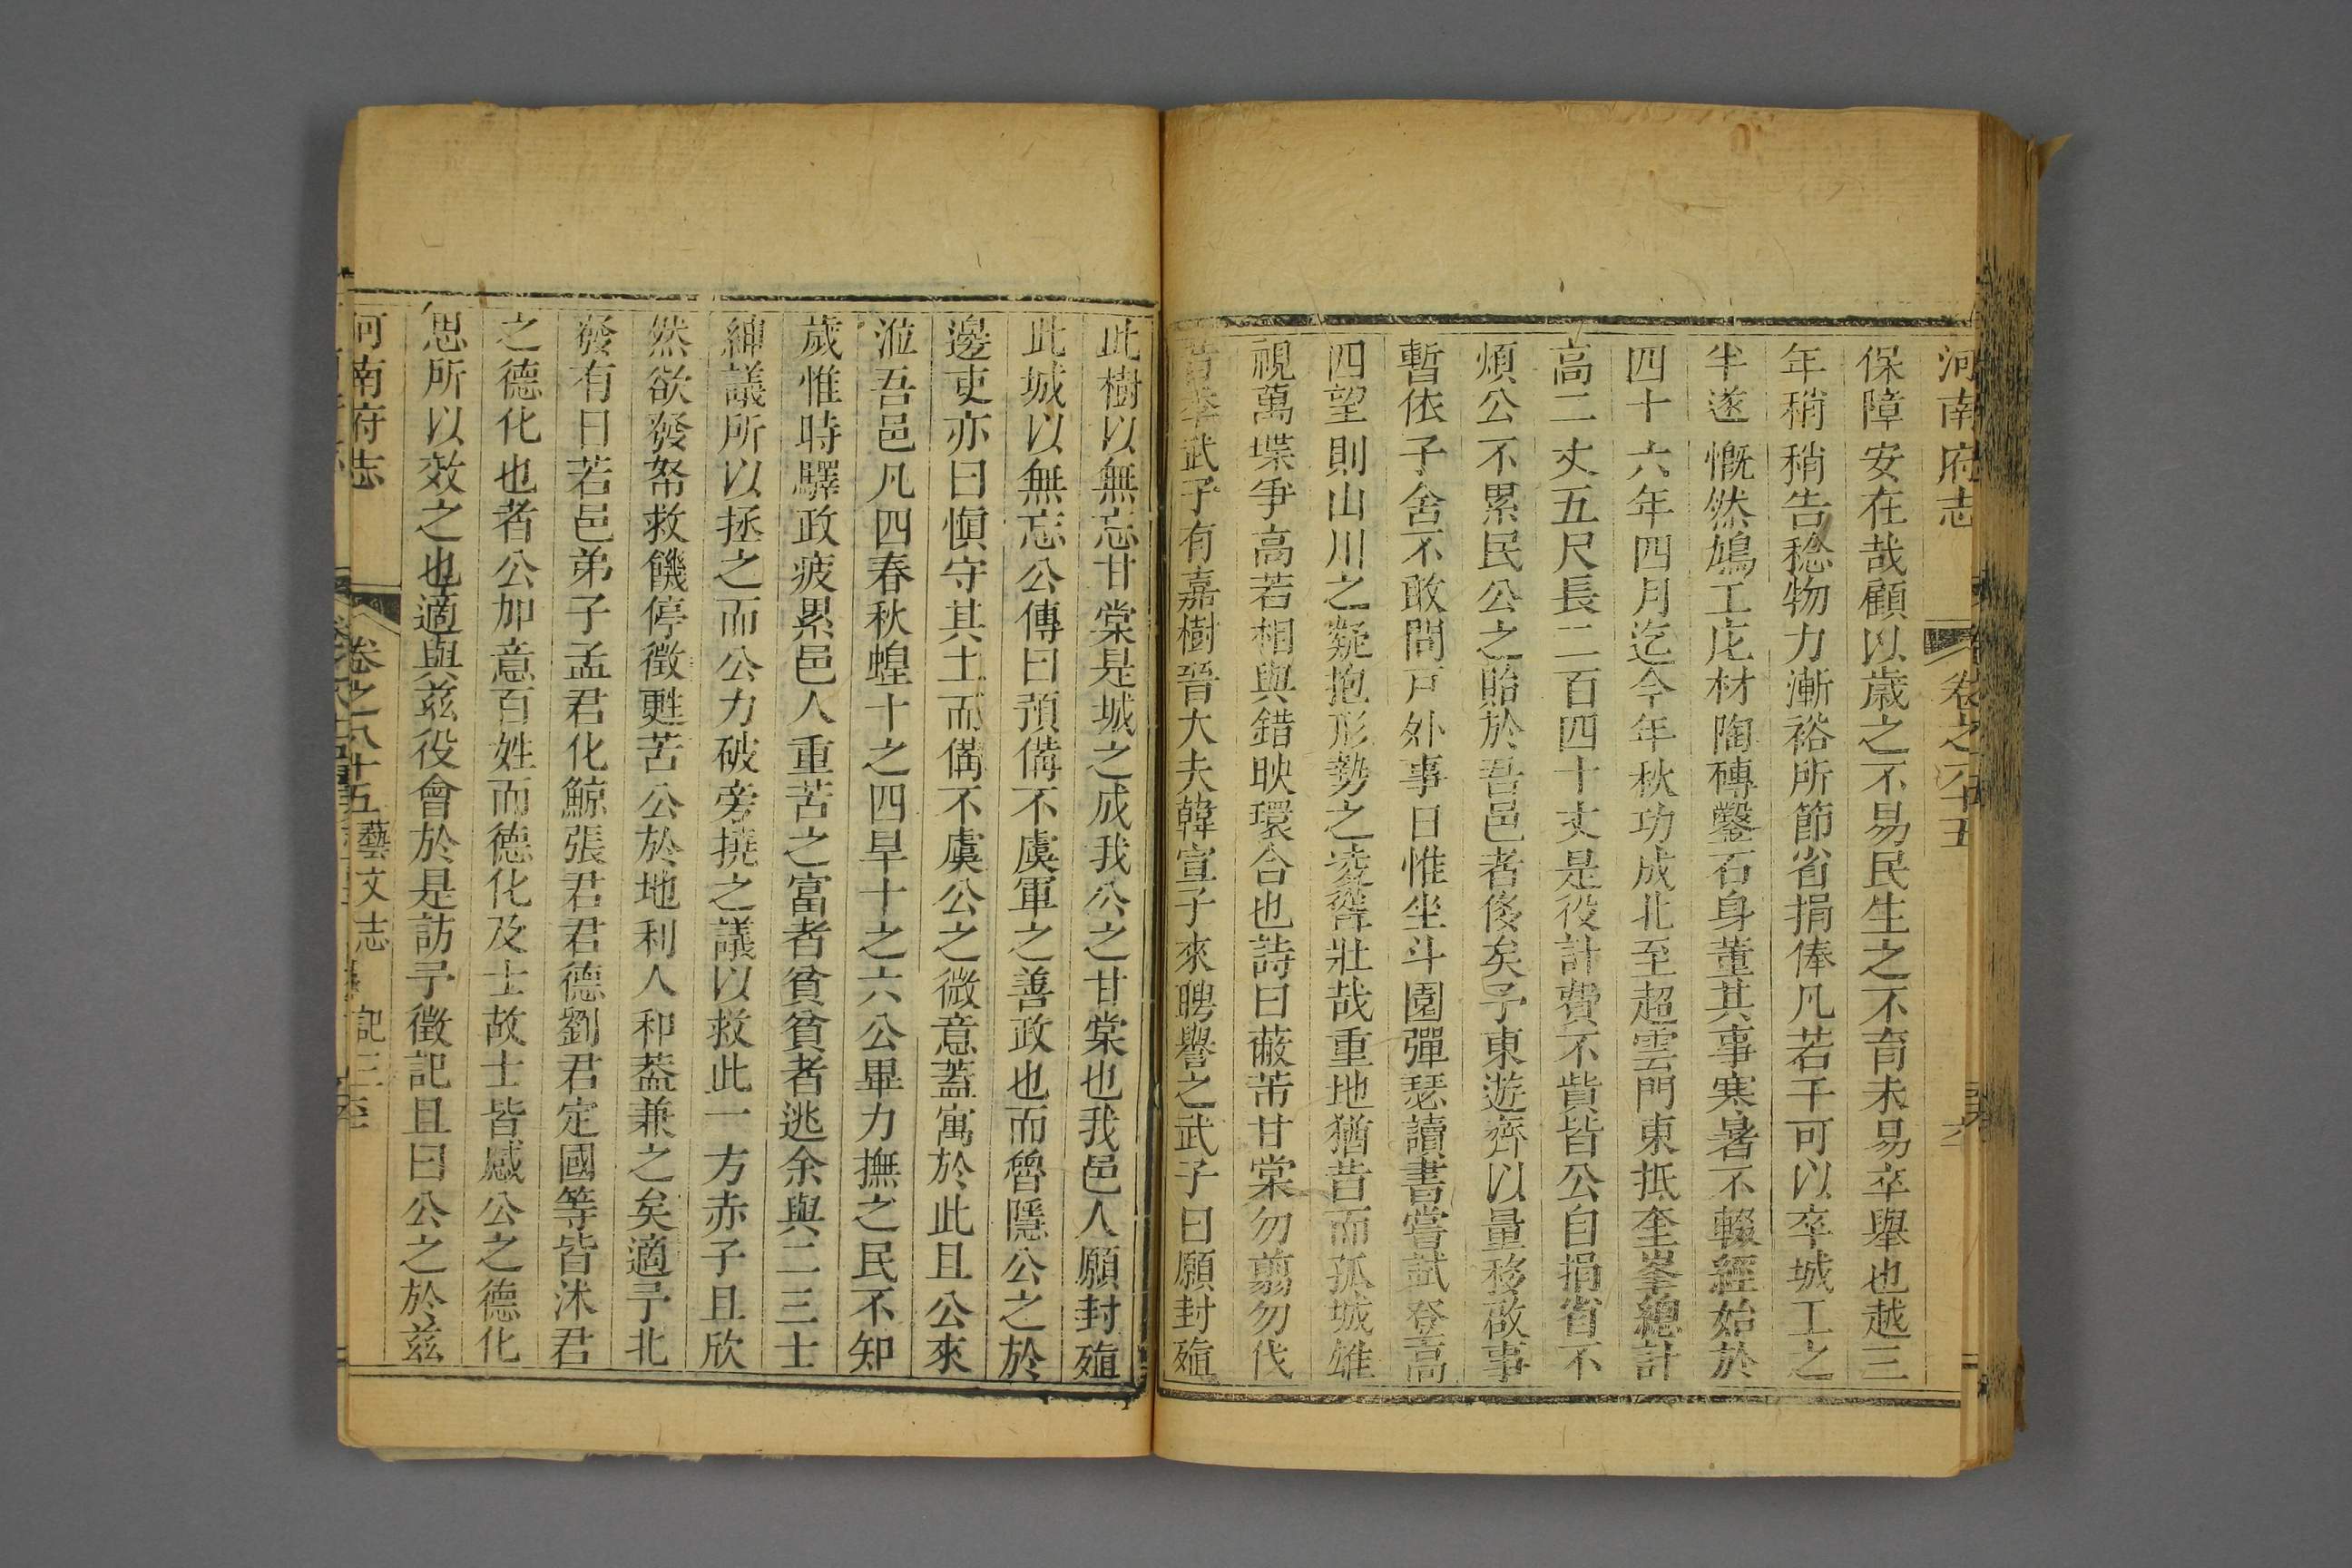 河南府志 卷之八十五
保障安在哉顧以歲之不易民生之不育未易卒舉也越三
年稍稍告稔物力漸裕所節省捐俸凡若干可以卒城工之
半遂慨然鳩工庀材陶磚鑿石身董其事寒暑不輟經始於
四十六年四月迄今年秋功成北至超雲門東抵奎峯總計
高二丈五尺長二百四十丈是役計費不貲皆公自捐省不
煩公不累民公之貽於吾邑者侈矣予東遊齊以量移啟事
暫依子舍不敢問戸外事日惟坐斗園彈瑟讀書嘗試登高
四望則山川之凝抱形勢之凌聳壯哉重地猶昔而孤城雄
視萬堞爭高若相與錯映環合也詩曰蔽芾甘棠勿翦勿伐
昔季武子有嘉樹晉大夫韓宣子來聘譽之武子曰願封殖
此樹以無忘甘棠是城之成我公之甘棠也我邑人願封殖
此城以無忘公傳曰預備不虞軍之善政也而魯隱公之於
邊吏亦曰愼守其土而備不虞公之微意蓋寓於此且公來
涖吾邑凡四春秋蝗十之四旱十之六公畢力撫之民不知
歲惟時驛政疲累邑人重苦之富者貧貧者逃余與二三士
紳議所以拯之而公力破旁撓之議以救此一方赤子且欣
然欲發帑救饑停徵甦苦公於地利人和葢兼之矣適予北
發有日若邑弟子孟君化鯨張君君德劉君定國等皆沐君
之德化也者公加意百姓而德化及士故士皆感公之德化
思所以效之也適與茲役會於是訪予徵記且曰公之於茲
河南府志 卷之八十五 藝文志 記三